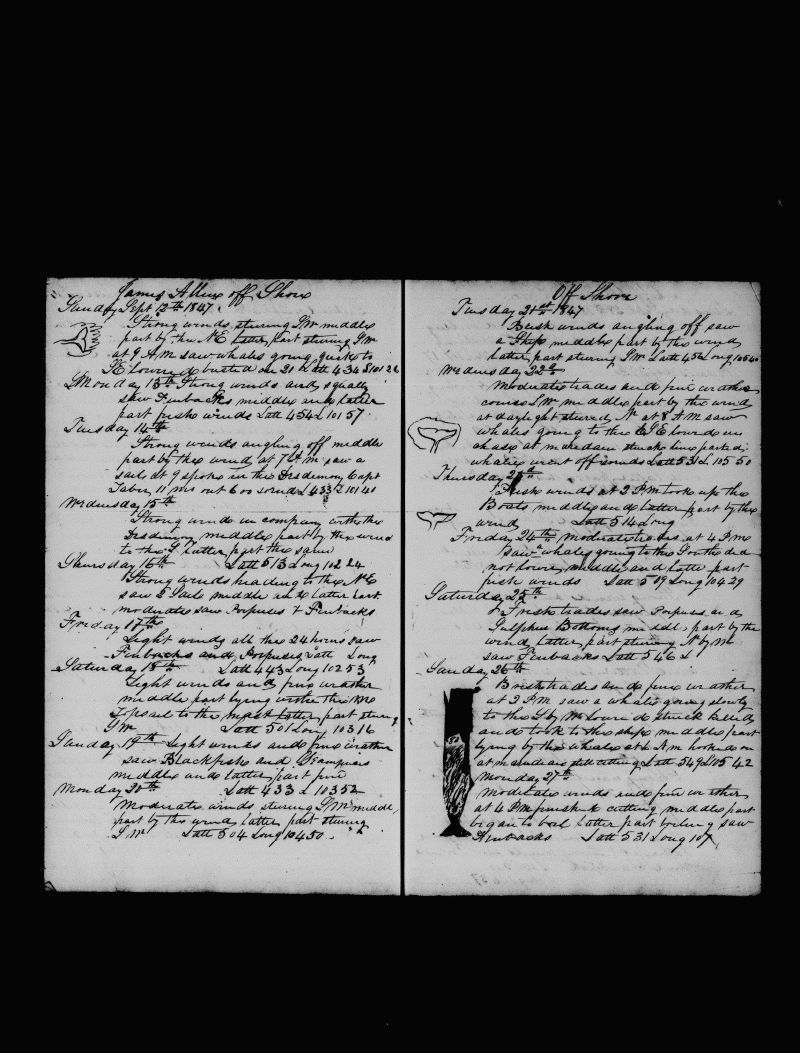 James Allen off Shore
Sunday Sept 12th 1847
Strong winds stering SW middle
part by the NE latter part stering SW
at 9 AM saw whales going quick to
lowered busted on 20 Latt 4 34 L 101 26
Monday 13th Strong winds and squally
saw Finbacks middle and latter
part fresh winds Latt 4 54 L 101 57
Tuesday 14th
Strong winds angling off middle
part by the wind at 7 AM saw a
sail at 9 spoke in the Desdemony Capt
Taber 11 ms out 600 L 4 33 L 101 40
Wednesday 15th
Strong winds in company with the
Desdemony middle part by the wind
to the S latter part the same
Thursday 16th Latt 5 13 Long 102 24
Strong winds heading to the NE
saw 5 Sails middle and latter part
moderate saw Porpuses & Finbacks
Friday 17th
Light winds all this 24 hours saw
Finbacks and Porpuses Latt Long
Saturday 18th Latt 4 43 Long 102 53
Light winds and fine weather
middle part lying with the
Topsail to the mast latter part stering
SW Latt 5 01 Lon 103 16
Sunday 19th Light winds and fine weather
saw Blackfish and Grampuses
middle and latter part fine
Monday 20th Latt 4 33 L 103 52
Moderate winds stering SW middle
part by the wind latter part stering
SW Latt 5 04 Long 104 50
Off Shore
Tuesday 21st 1847
Brisk winds angling off saw
a Ship middle part by the wind
latter part stering SW Latt 4 52 Long 105 40
Wednesday 22d
Moderate trades and fine weather
course SW middle part by the wind
at daylight stered N at 8 AM saw
whales going to the ESE lowered in
chase at meredian struck line parted
whales went off Latt 5 31 L 105 50
Thursday 23d
Fresh winds at 2 PM took up the
Boats middle and latter part by the
wind Latt 5 14 Long
Friday 24th moderate trades at 4 PM
saw whales going to the South did
not lower middle and latter part
fresh winds Latt 5 19 Long 104 29
Saturday 25th
Fresh trades saw Porpuses and
Sulpher Bottoms middle part by the
wind latter part stering N by W
saw Finbacks Latt 5 46 L
Sunday 26th
Brisk trades and fine weather
at 2 PM saw a whale going slowly
to the S by W lowered struck killed
and took to the ship middle part
lying by the whale at 6 AM hooked on
at meredian still cutting Latt 5 49 L 105 42
Monday 27th
Moderate winds and fine weather
at 4 PM finished cutting middle part
began to boil latter part boiling saw
Finbacks Latt 5 31 Long 107